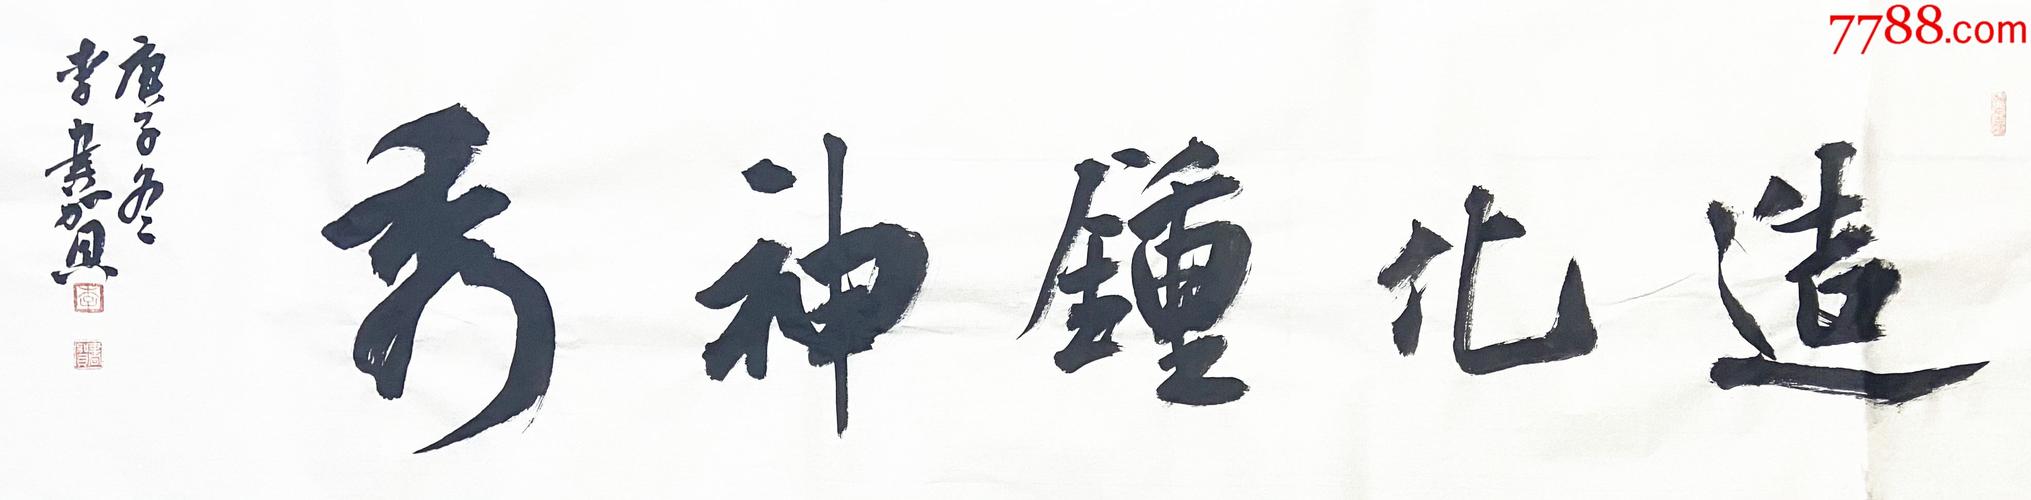 造化鍾神秀
庚子冬
李書賀
7788.com